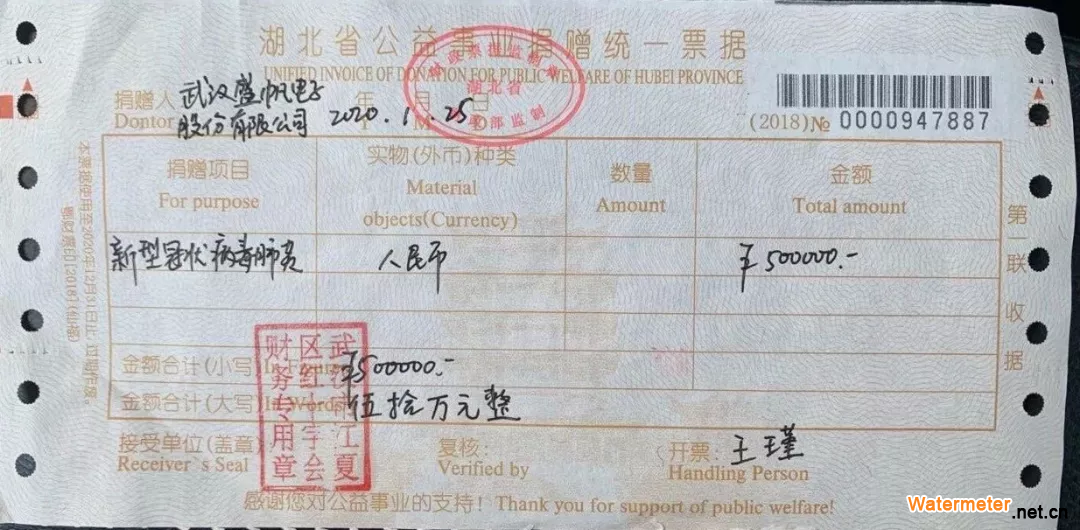 湖北省公益事业捐赠统一票据
UNIFIED INVOICE OF DONATION FOR PUBLIC WELFARE OF HUBEI PROVINCE
湖北省
捐赠人 武汉盛帆电子
Dontor 股份有限公司
年 月 日
Y M D
2020.1.25
(2018) № 0000947887
捐赠项目
For purpose
实物(外币)种类
Material
objects(Currency)
数量
Amount
金额
Total amount
新型冠状病毒肺炎 人民币 ¥500000.-
金额合计(小写) In Figures ¥500000.-
金额合计(大写) In Words 伍拾万元整
武汉市江夏
区红十字会
财务专用章
接受单位(盖章)
Receiver's Seal
复核:
Verified by
开票: 王瑾
Handling Person
感谢您对公益事业的支持! Thank you for support of public welfare!
第一联 收据
Watermeter.net.cn